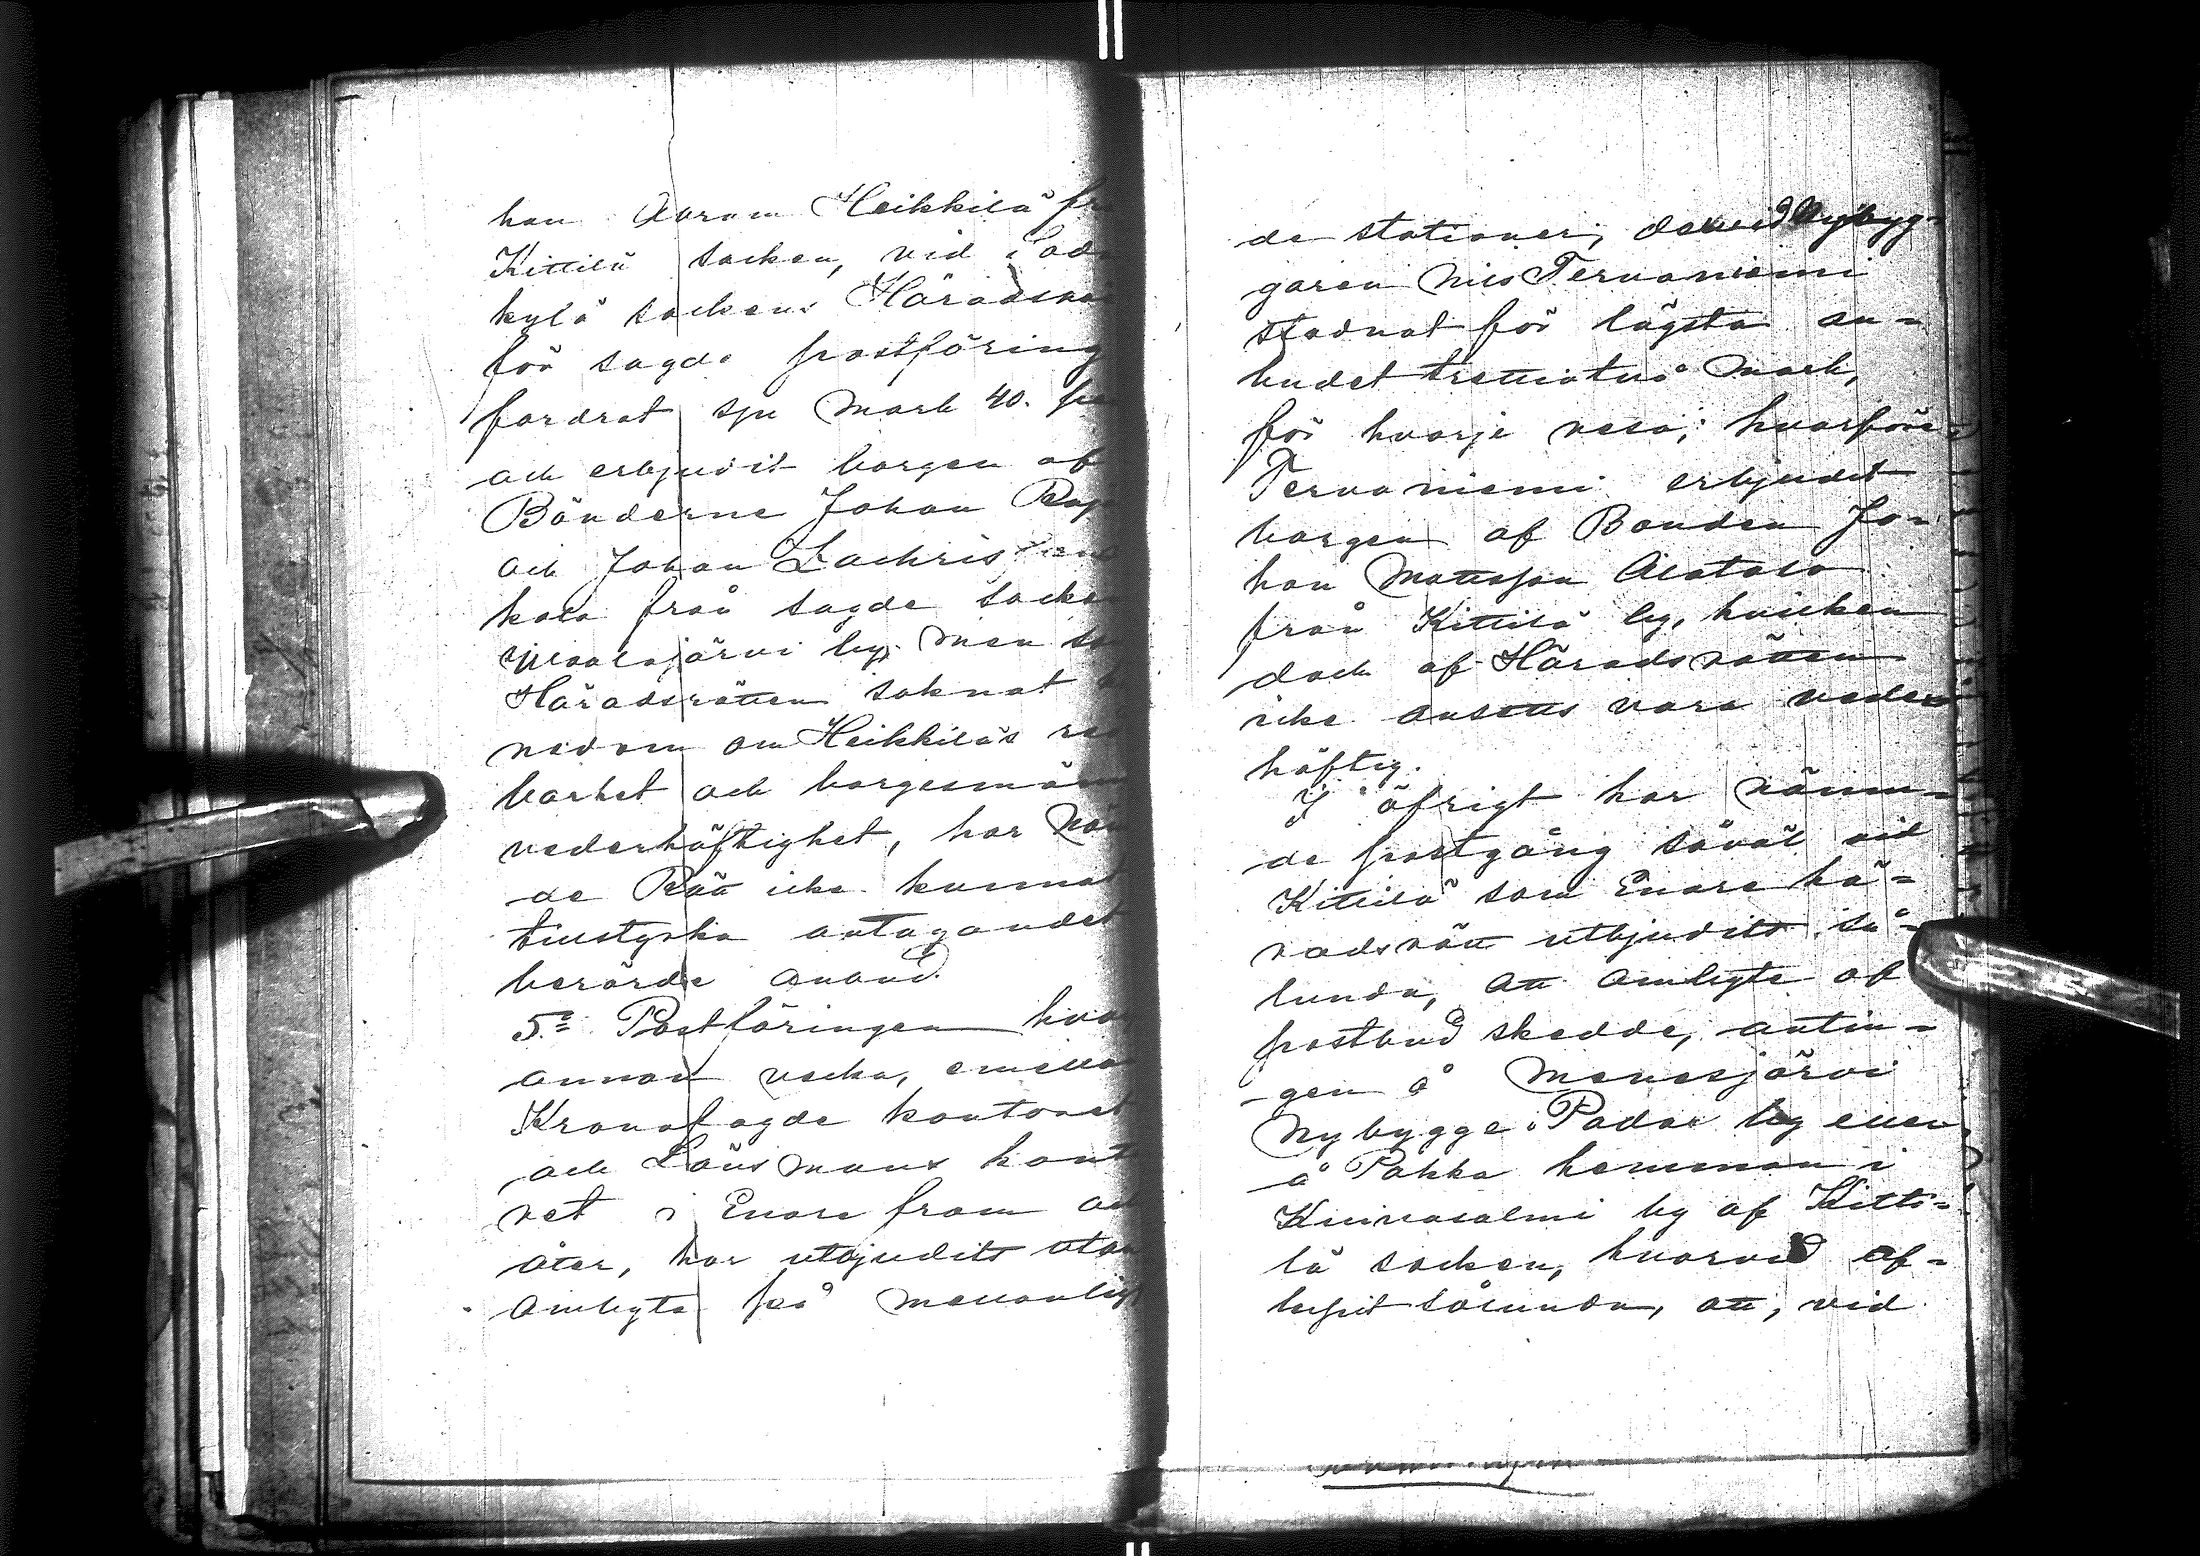 han Abram Heikkilä fr
Kittilä socken, vid Sod
kylä sockens Häradsrä
för sagde postföring
fordrat sju Mark 40. pe
och erbjudit borgen af
Bönderne Johan Rap
och Johan Zachris
kola från sagde socke
järvi by. Men so
Häradsrätten saknat
nedom om Heikkiläs re
barhet och borgesmän
vederhäftighet, har Näm
de Rätt icke kunnat
tillstyrka antagandet
berörde anbud.
5:º Postföringen hva
annan vecka, emella
Kronofogde kontoret
och Länsmans kont
ret i Enare fram oc
åter, har utbjudits utan
ombyte på mellanlig
de stationer, dervid Nybyg-
garen Nils Tervaniemi
stadnat för lägsta an-
budet trettiotvå Mark,
för hvarje resa; hvarföre
Tervaniemi erbjudit
borgen af Bonden Jo-
han Mattsson Alatalo
från Kittilä by, hvilken
dock af Häradsrätten
icke ansetts vara veder
häftig.
I öfrigt har näm-
de postgång såväl vid
Kittilä som Enare hä-
radsrätt utbjudits så-
lunda, att ombyte af
postbud skedde, antin-
gen å Menesjärvi
Nybygge i Padar by eller
å Pokka hemman i
Kuivasalmi by af Kitti-
lä socken, hvarvid af-
lupit sålunda, att, vid